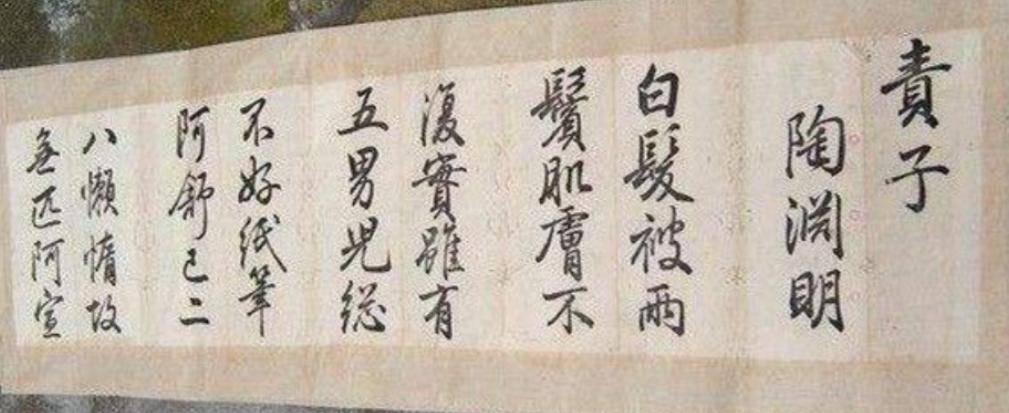 責子
陶渊明
白髮被兩
鬢肌膚不
復實雖有
五男児総
不好紙筆
阿舒已二
八懶惰故
無匹阿宣